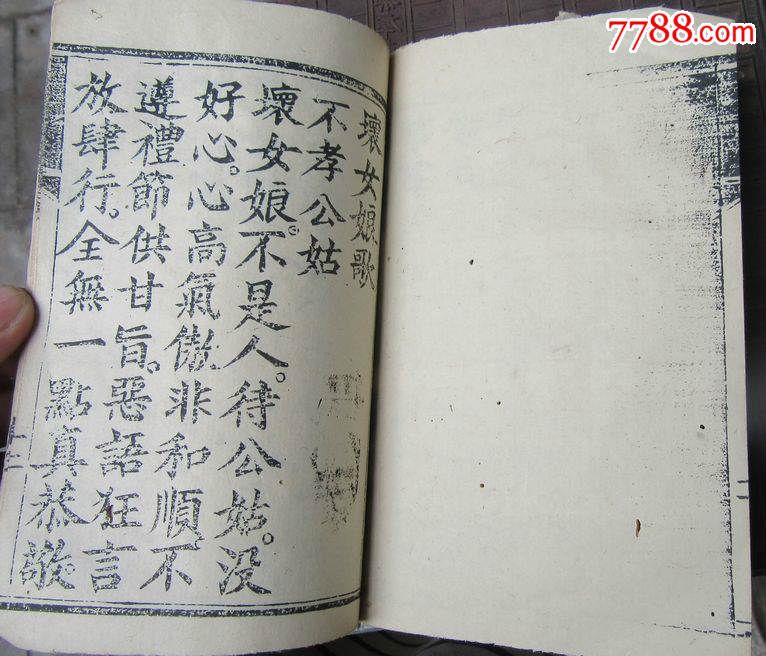 7788.com
壞女娘歌
不孝公姑
壞女娘。不是人。待公姑。没
好心。心高氣傲非和順。不
遵禮節供甘旨。惡語狂言
放肆行。全無一點真恭敬。